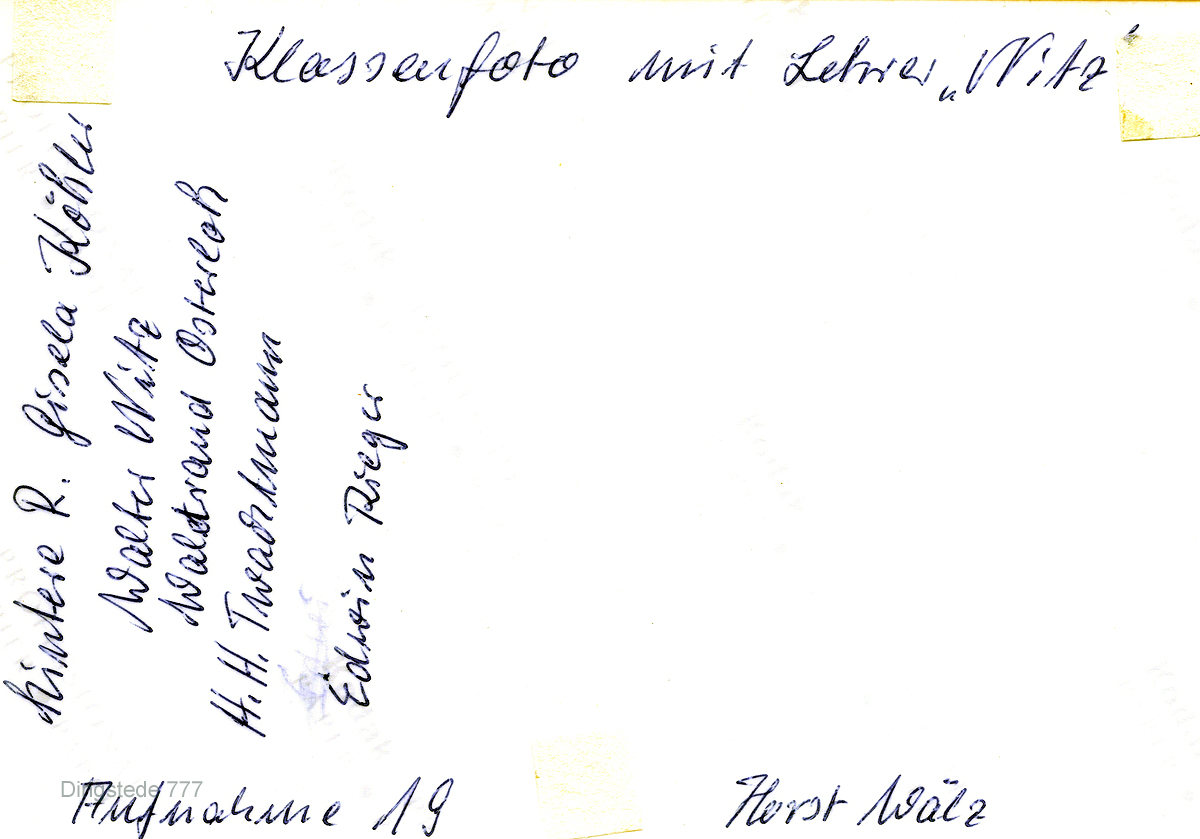 Klassenfoto mit Lehrer „Witz“
hintere R. Gisela Köhler
Walter Witz
Waltraud Osterloh
H. H. Twachtmann
Edwin Rieger
Dingstede 777
Aufnahme 19
Horst Wälz